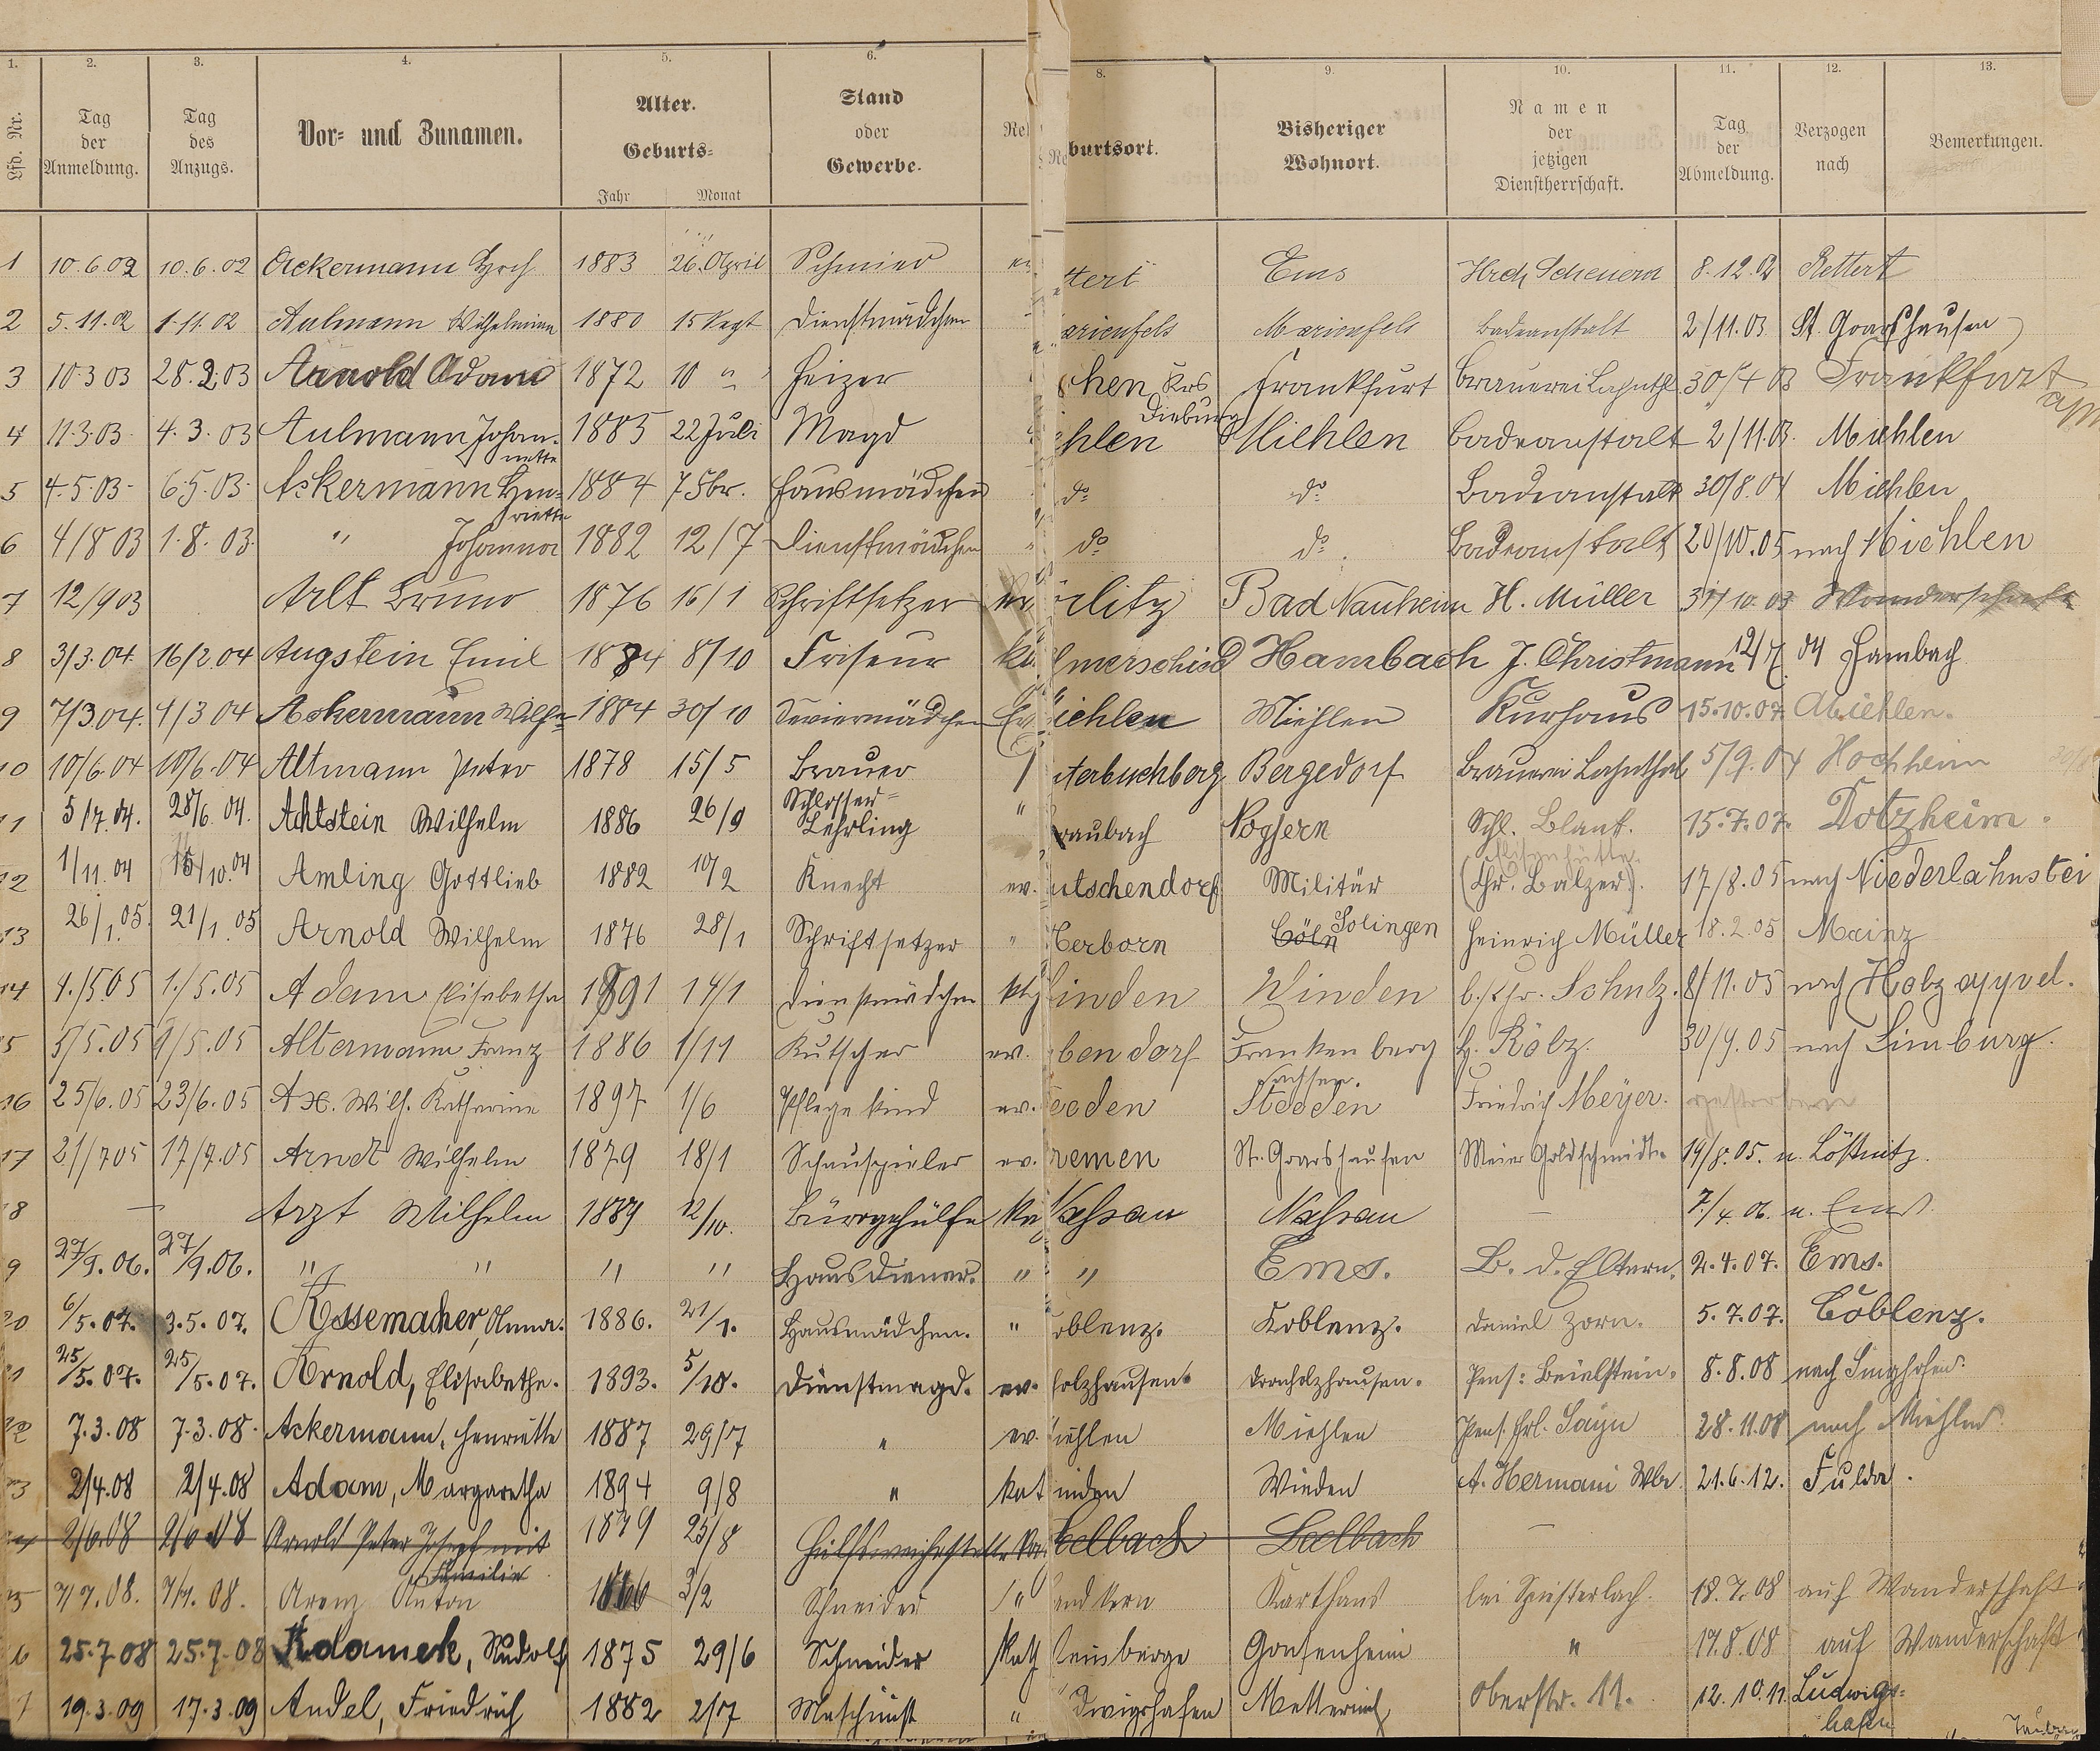 1. 2. 3. 4. 5. 6. 8. 9. 10. 11. 12. 13.
Lfd. Nr. Tag der Anmeldung. Tag des Anzugs. Vor- und Zunamen. Alter. Geburts- Jahr Monat Stand oder Gewerbe. Rel burtsort. Bisheriger Wohnort. Namen der jetzigen Dienstherrschaft. Tag der Abmeldung. Verzogen nach Bemerkungen.
1 10.6.02 10.6.02 Ackermann Hrch 1883 26. April Schmied ev ttert Ems Hrch Scheuern 8.12.02 Rettert
2 5.11.02 1.11.02 Aulmann Wilhelmine 1880 15 Sept Dienstmädchen " arienfels Marienfels Badeanstalt 2/11.03 St. Goarshausen
3 10.3 03 28.2.03 Arnold Adam 1872 10 " Heizer chen Krs Dieburg Frankfurt Brauerei Lahnthl 30/4 03 Frankfurt a/M
4 11.3.03 4.3.03 Aulmann Johannette 1885 22 Juli Magd ehlen Miehlen Badeanstalt 2/11.03. Miehlen
5 4.5.03 6.5.03 Ackermann Henriette 1884 7 Fbr. Hausmädchen do do Badeanstalt 30/8.04 Miehlen
6 4/8 03 1.8.03. " Johanna 1882 12/7 Dienstmädchen do do. Badeanstalt 20/10.05 nach Miehlen
7 12/9 03 Arlt Bruno 1876 16/1 Schriftsetzer rlitz Bad Nauheim H. Müller 31/10.03 Wanderschaft
8 3/3.04. 16/2 04 Augstein Emil 1884 8/10 Friseur merschied Hambach J. Christmann 12/7. 04 Hambach
9 7/3 04. 1/3 04 Ackermann Wilh. 1884 30/10 Serviermädchen Ev iehlen Miehlen Kurhaus 15.10.07. Miehlen.
10 10/6.04 10/6.04 Altmann Peter 1878 15/5 Brauer terbuchberg Bergedorf Brauerei Lahnthal 5/9.04 Hochheim
11 5/7.04. 28/6.04. Achtstein Wilhelm 1886 26/9 Schlosser- Lehrling " raubach Schl. Blank. 15.7.07. Dotzheim.
12 1/11.04 15/10.04 Amling Gottlieb 1882 10/2 Knecht ev. utschendorf Militär (Chr. Balzer). 17/8.05 nach Niederlahnstei
13 26/1.05. 21/1.05 Arnold Wilhelm 1876 28/1 Schriftsetzer " Herborn Cöln Solingen Heinrich Müller 18.2.05 Mainz
14 4./5.05 1./5.05 Adam Elisabetha 1891 14/1 Dienstmädchen kth inden Winden b. Chr. Schulz. 8/11.05 nach Holzappel.
15 5/5.05 1/5.05 Altermann Franz 1886 1/11 Kutscher ev. bendorf Frankenberg Sachsen. H. Kölz. 30/9.05 nach Limburg.
16 25/6.05 23/6.05 Ax. Wilh. Katharine 1897 1/6 Pflegekind ev. eeden Steeden Friedrich Meyer. gestorben
17 21/7 05 17/7.05 Arndt Wilhelm 1879 18/1 Schauspieler ev. remen St. Goarshausen Meier Goldschmidt. 19/8.05. n. Lößnitz.
18 — Arzt Wilhelm 1889 12/10. Bürogehülfe Ka Nassau Nassau — 7./4.06. n. Ems.
9 27/9.06. 27/9.06. " " " " Hausdiener. " " Ems. B. d. Eltern. 2.4.07. Ems.
20 6/5.07. 3.5.07. Assemacher, Anna. 1886. 21/1. Hausmädchen. " oblenz. Koblenz. Daniel Zorn. 5.7.07. Coblenz.
21 25/5.07. 25/5.07. Arnold, Elisabethe. 1893. 5/10. Dienstmagd. ev. holzhausen. Dornholzhausen. Pens: Beielstein. 8.8.08 nach Singhofen.
22 7.3.08 7.3.08. Ackermann, Henriette 1887 29/7 " ev. iehlen Miehlen Pens. Frl. Sayn 28.11.08 nach Miehlen.
23 2/4.08 2/4.08 Adam, Margaretha 1894 9/8 " kat inden Winden A. Hermani Wwe 21.6.12. Fulda.
2/6.08 2/6.08 Arnold Peter Josef mit Familie 1879 25/8 Seelbach Seelbach —
25 7/7.08. 7/7.08. Arenz Anton 3/2 Schneider " Karthaus bei 18.7.08 auf Wanderschaft
6 25.7.08 25.7.08 Adamek, Rudolf 1875 29/6 Schneider Kath einberge Gonsenheim " 17.8.08 auf Wanderschaft
7 19.3.09 17.3.09 Andel, Friedrich 1882 2/7 Maschinist " dwigshafen Metternich Oberstr. 11. 12.10.11. Ludwigs-
hafen